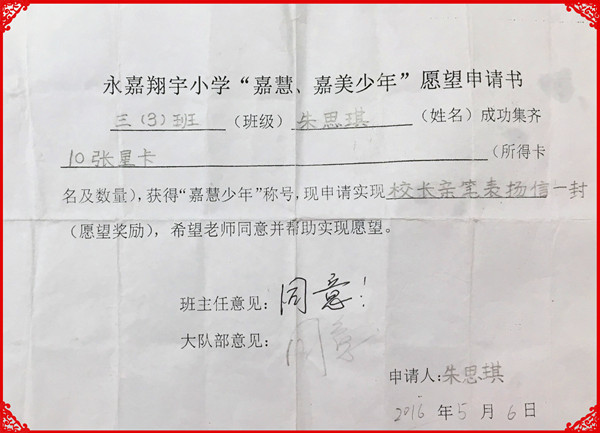 永嘉翔宇小学“嘉慧、嘉美少年”愿望申请书
三(3)班(班级)朱思琪(姓名)成功集齐
10张星卡(所得卡
名及数量),获得“嘉慧少年”称号,现申请实现校长亲笔表扬信一封
(愿望奖励),希望老师同意并帮助实现愿望。
班主任意见:同意!
大队部意见:同意
申请人:朱思琪
2016年5月6日